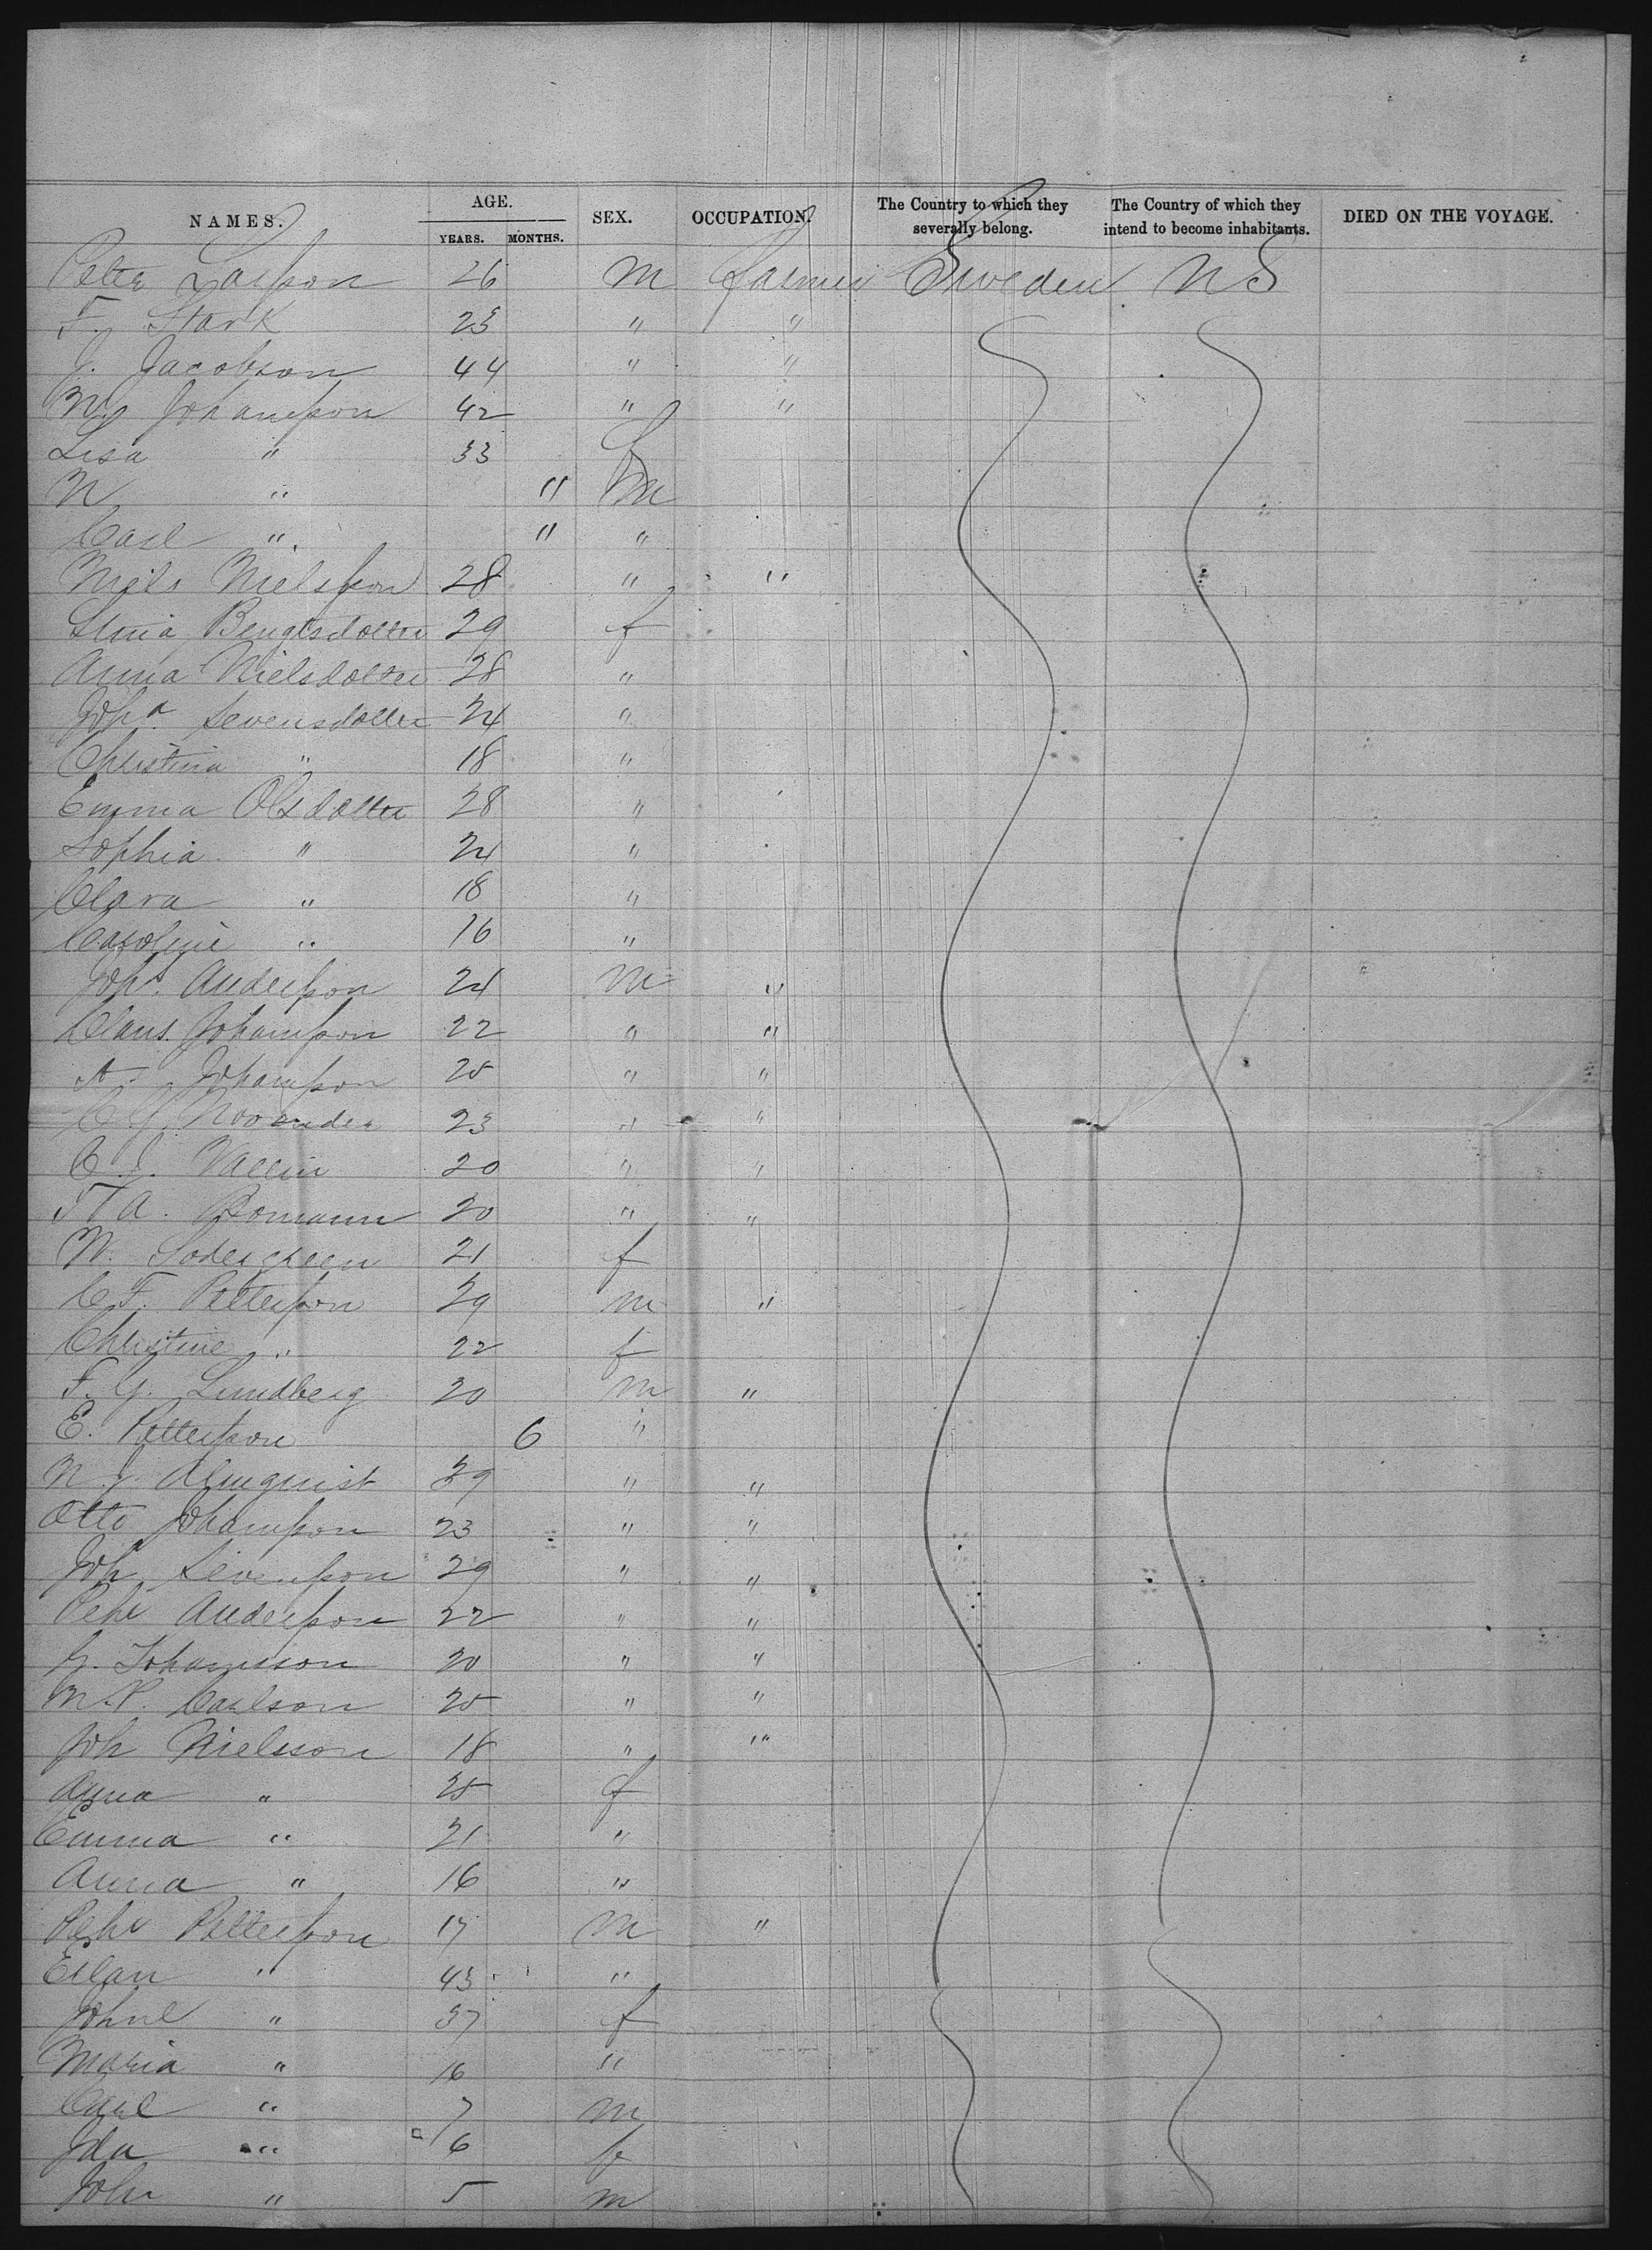 NAMES. AGE. YEARS. MONTHS. SEX. OCCUPATION. The Country to which they severally belong. The Country of which they intend to become inhabitants. DIED ON THE VOYAGE.
Peter Larsson 26 m Farmer Sweden U S
F. Stark 23 " "
J. Jacobson 44 " "
M. Johansson 42 " "
Lisa " 33 f
N " 11 m
Carl " 11 "
Niels Nielsson 28 " "
Stina Bengtsdotter 29 f
Anna Nielsdotter 28 "
Joha Svensdotter 24 "
Christina " 18 "
Emma Olsdotter 28 "
Sophia " 24 "
Clara " 18 "
Caroline " 16 "
Johs. Andersson 24 m "
Claus. Johansson 22 " "
A. Johansson 25 " "
C. G. 23 " "
C. J. Vallin 20 " "
F A. Bomann 20 " "
N. Sodergreen 21 f
C F. Pettersson 29 m "
Christine " 22 f
F. G. Lundberg 20 m "
E. Pettersson 6 "
N. J. Almquist 39 " "
Otto Johansson 23 " "
Joh Svensson 29 " "
Pehr Andersson 22 " "
G. Johansson 20 " "
M. P. Carlson 25 " "
Joh Nielsson 18 " "
Anna " 25 f
Emma " 21 "
Anna " 16 "
Pehr Pettersson 17 m "
" 43 "
" 37 f
Maria " 16 "
Carl " 7 m
Ida " 6 f
John " 5 m